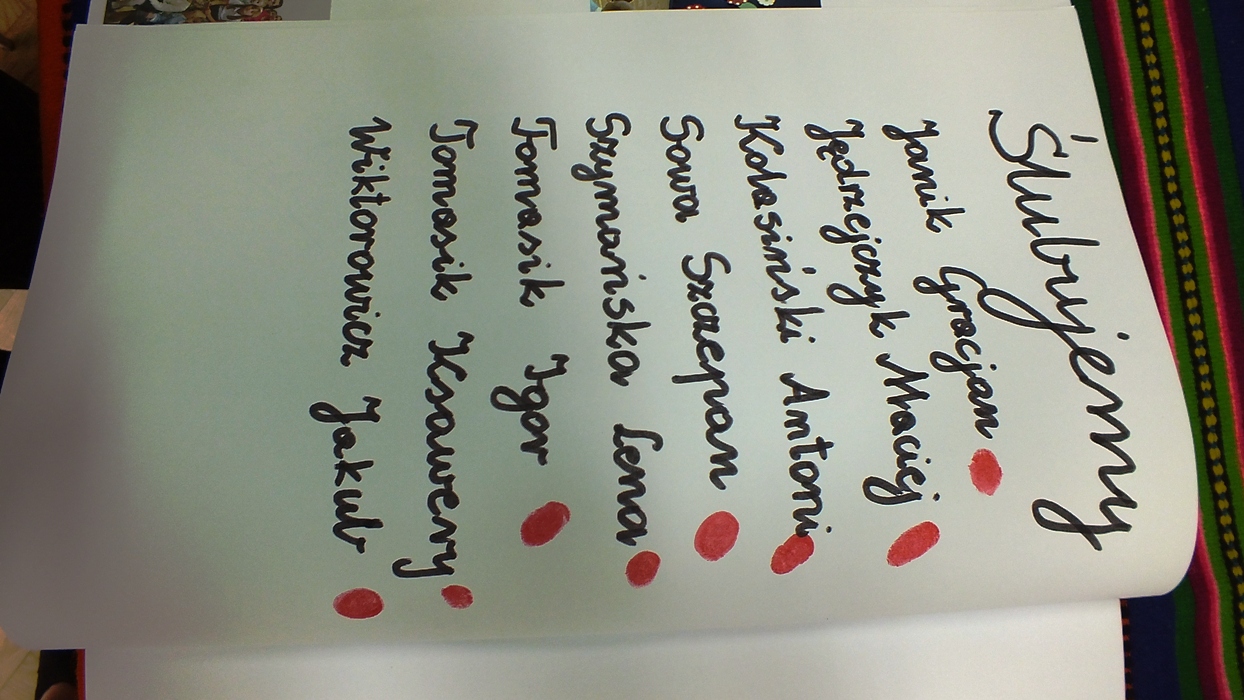 Ślubujemy
Janik Gracjan
Jędrzejczyk Maciej
Kołasiński Antoni
Sowa Szczepan
Szymańska Lena
Tomasik Igor
Tomasik Ksawery
Wiktorowicz Jakub